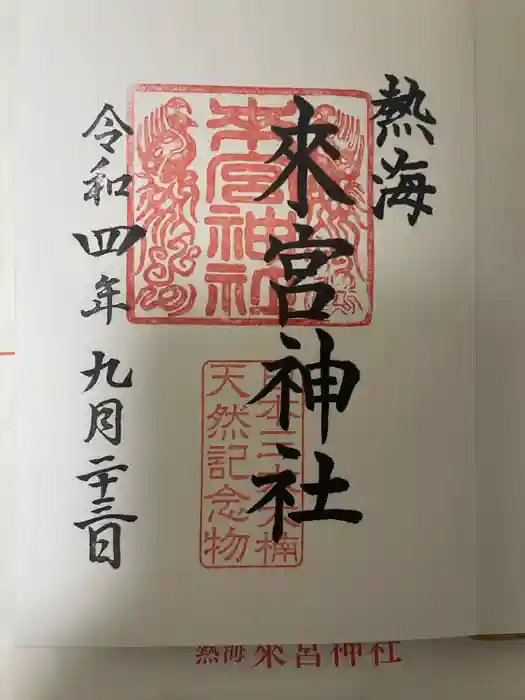 熱海
來宮神社
令和四年九月二十三日
来宮神社
日本三大楠
天然記念物
熱海 來宮神社